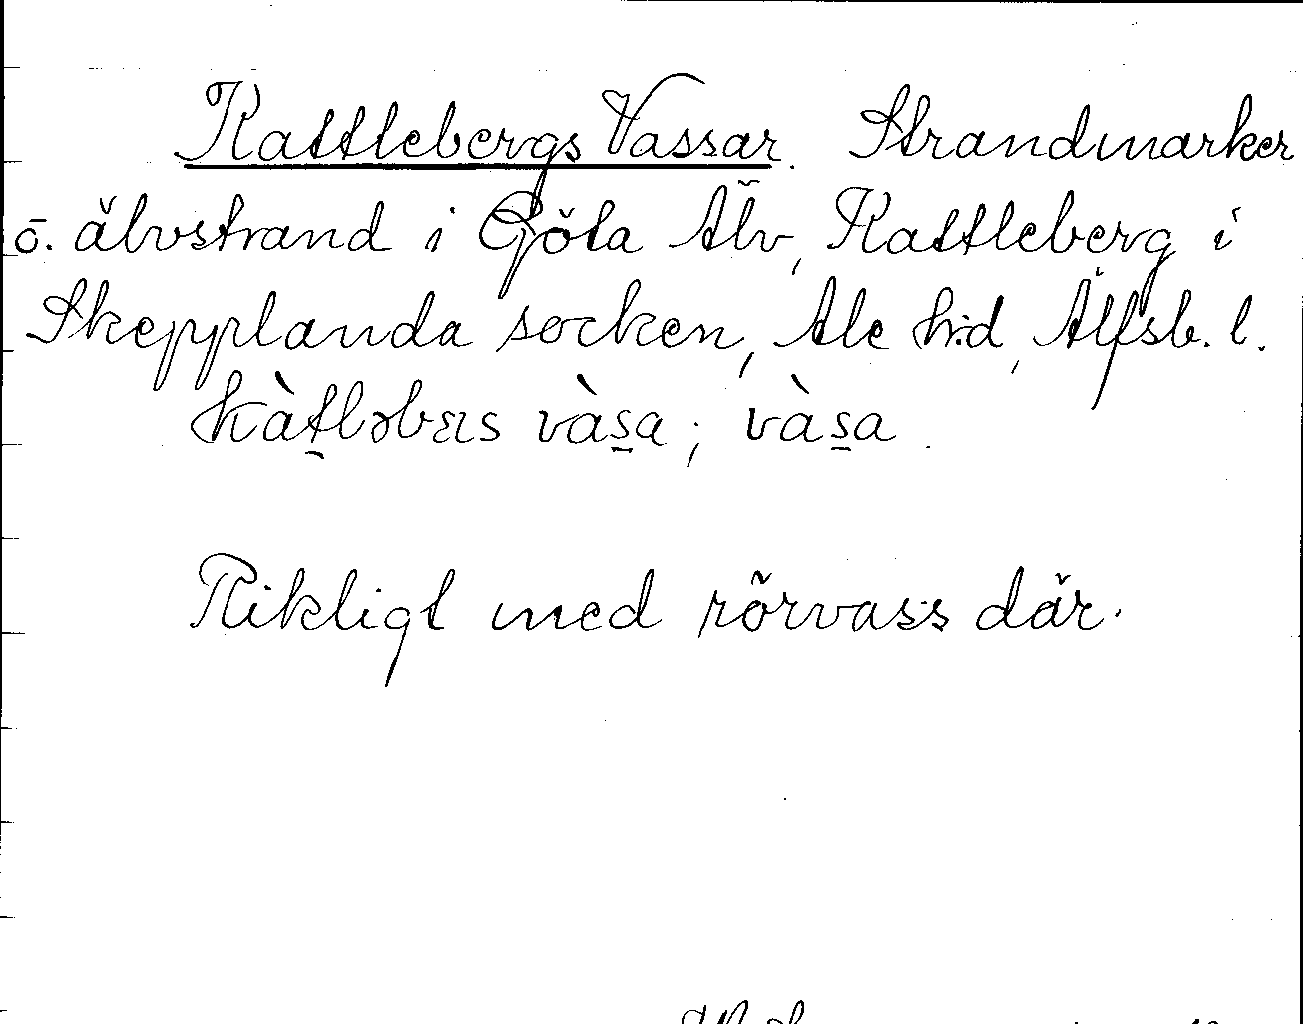 Kattlebergs Vassar. Strandmarker
ö. älvstrand i Göta Älv, Kattleberg i
Skepplanda socken, Ale h:d, Älfsb. l.
vàs̱a; vàs̱a.
Rikligt med rörvass där.